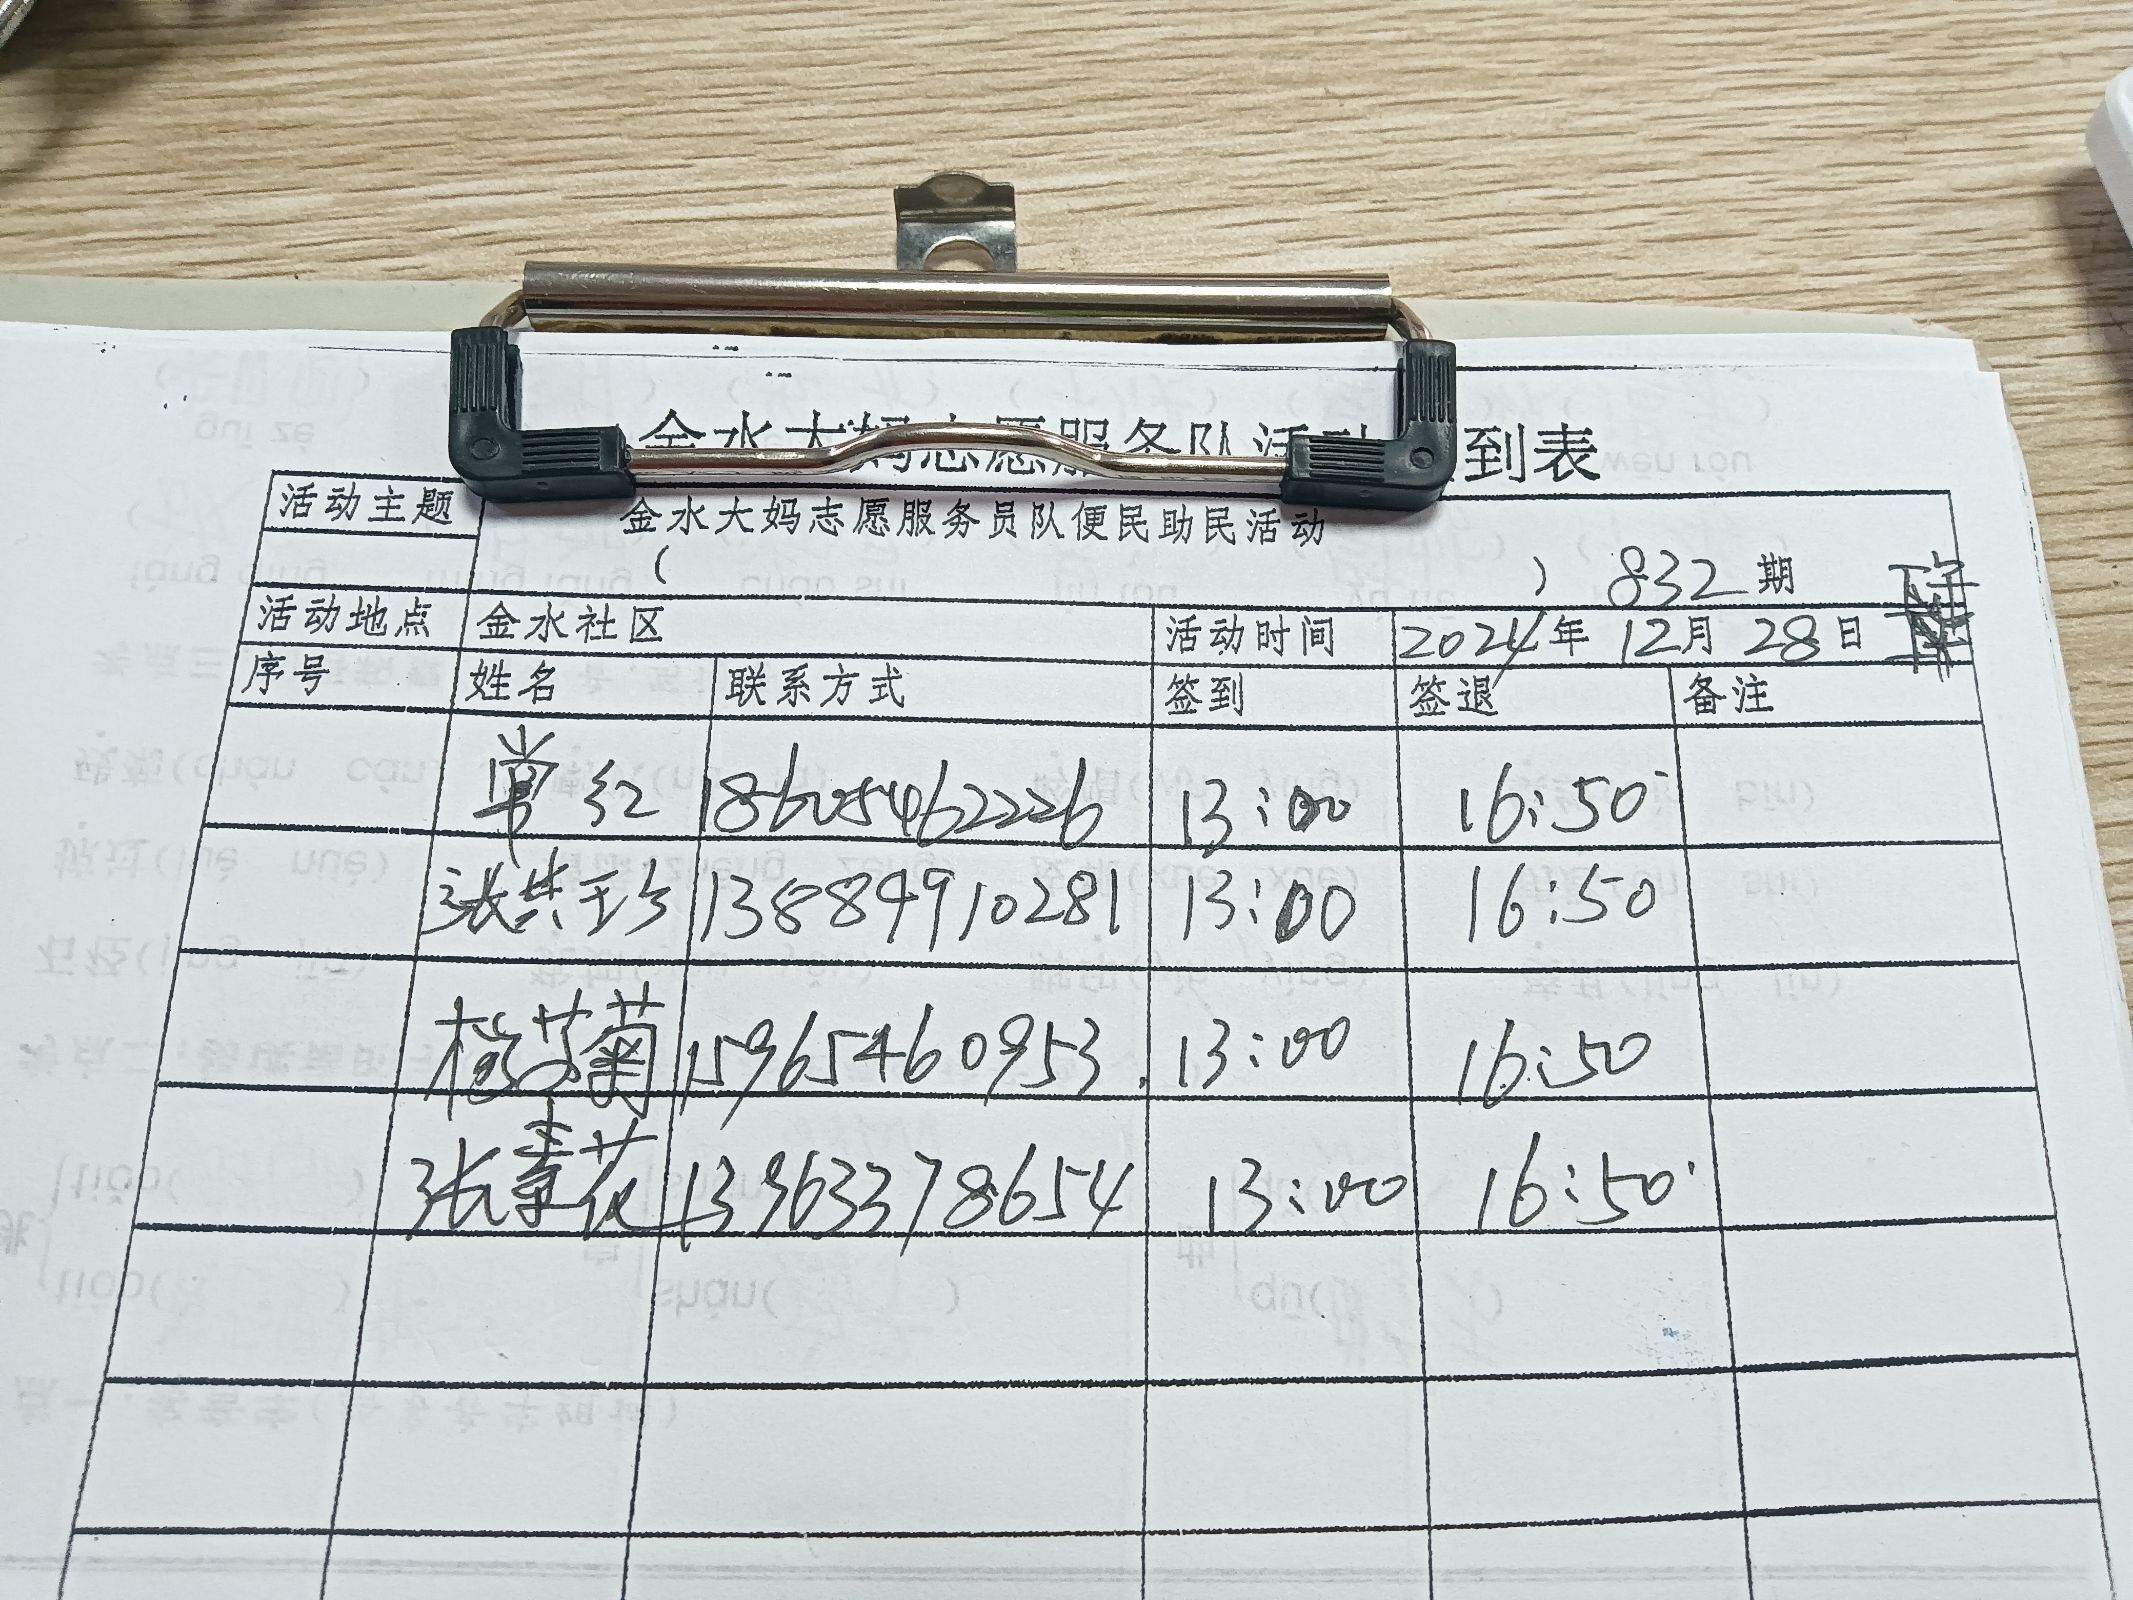 金水大妈志愿服务队活动 到表
活动主题 金水大妈志愿服务员队便民助民活动
( ) 832期
活动地点 金水社区 活动时间 2024年 12月 28日 下午
序号 姓名 联系方式 签到 签退 备注
常红 18605462226 13:00 16:50
张共珍 13884910281 13:00 16:50
菊 15965460953 13:00 16:50
张 花 13963378654 13:00 16:50